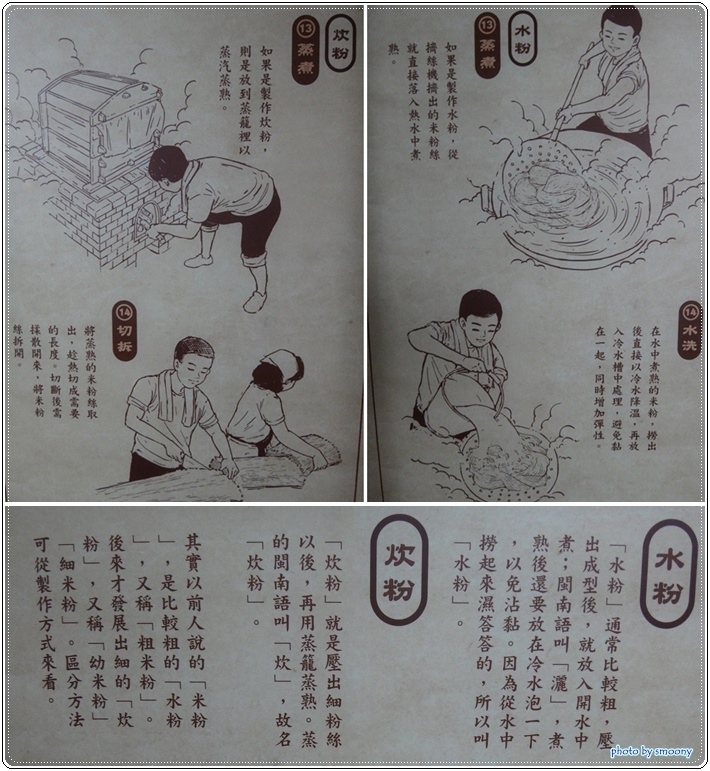 炊粉
⑬蒸煮
如果是製作炊粉，
則是放到蒸籠裡以
蒸汽蒸熟。
⑭切拆
將蒸熟的米粉絲取
出，趁熱切成需要
的長度。切斷後需
揉散開來，將米粉
絲拆開。
水粉
⑬蒸煮
如果是製作水粉，從
擠絲機擠出的米粉絲
就直接落入熱水中煮
熟。
⑭水洗
在水中煮熟的米粉，撈出
後直接以冷水降溫，再放
入冷水槽中處理，避免黏
在一起，同時增加彈性。
水粉
「水粉」通常比較粗，壓
出成型後，就放入開水中
煮；閩南語叫「灑」，煮
熟後還要放在冷水泡一下
，以免沾黏。因為從水中
撈起來濕答答的，所以叫
「水粉」。
炊粉
「炊粉」就是壓出細粉絲
以後，再用蒸籠蒸熟。蒸
的閩南語叫「炊」，故名
「炊粉」。
其實以前人說的「米粉
」，是比較粗的「水粉
」，又稱「粗米粉」。
後來才發展出細的「炊
粉」，又稱「幼米粉」
「細米粉」。區分方法
可從製作方式來看。
photo by smoony